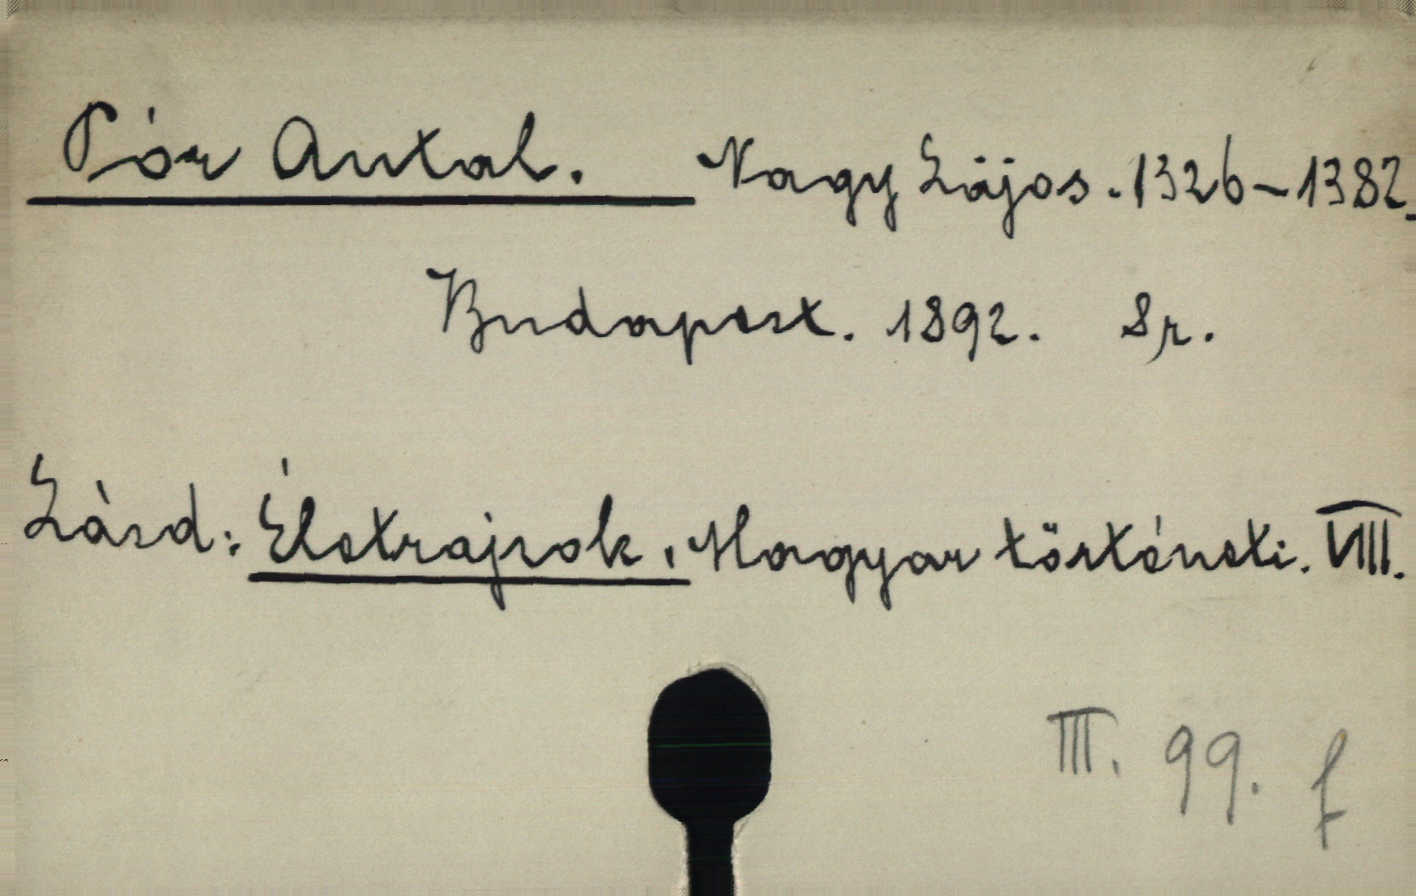 Pór Antal. Nagy Lájos. 1326–1382.
Budapest. 1892. 8r.
Lásd: Életrajzok. Magyar történeti. VIII.
III. 99. f